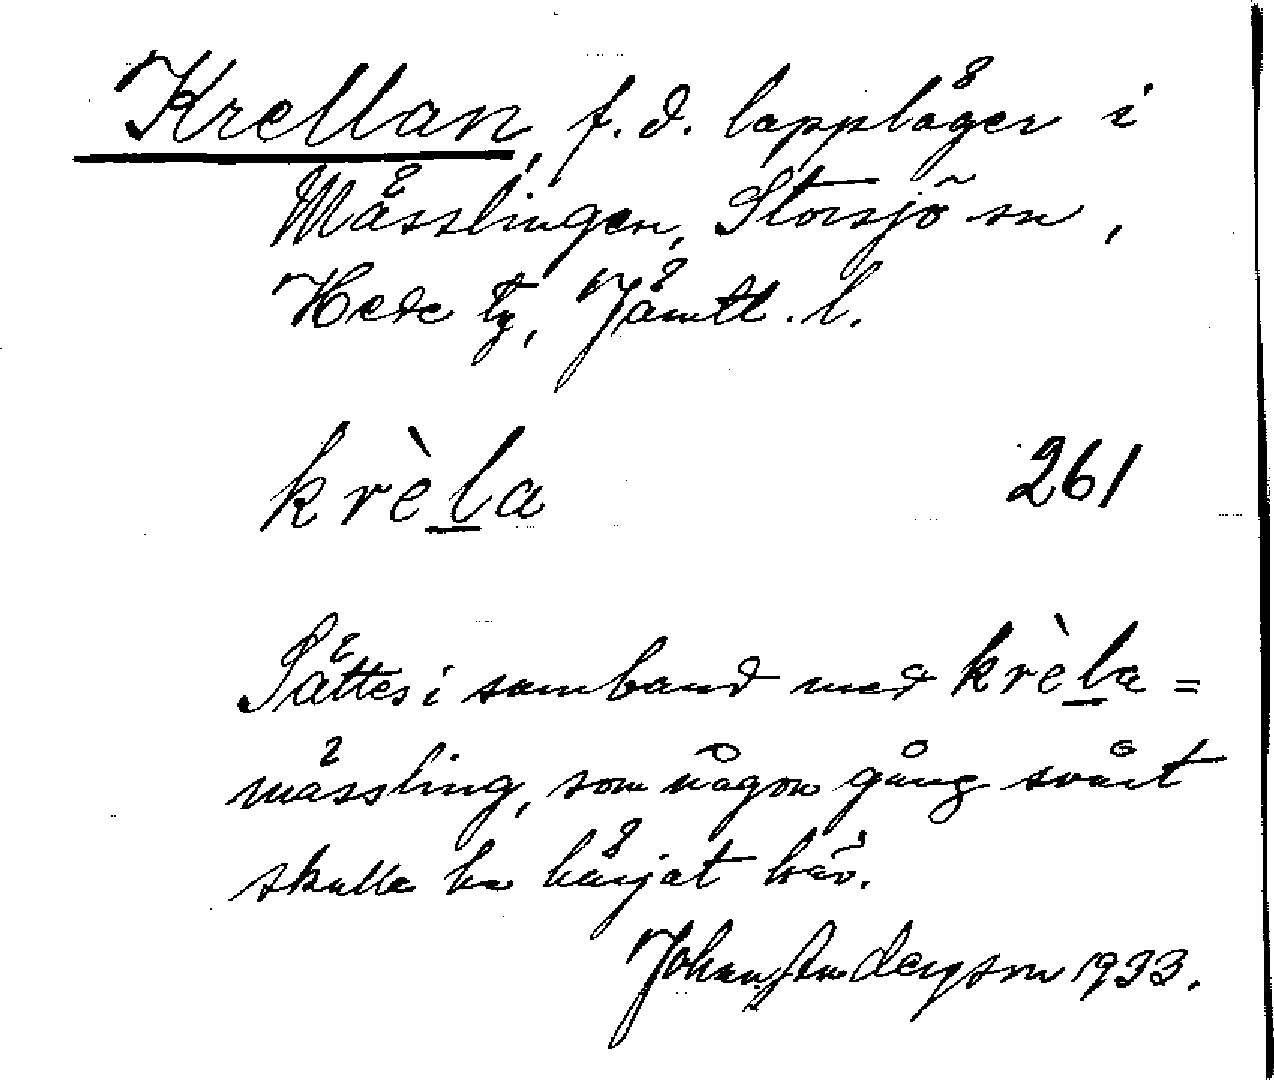 Krellan, f.d. lappläger i
Mässlingen, Storsjö sn,
Hede tg, Jämtl. l.
krèla 261
Sättes i samband med krèla =
mässling, som någon gång svårt
skulle ha härjat här.
Johan Anderson 1933.